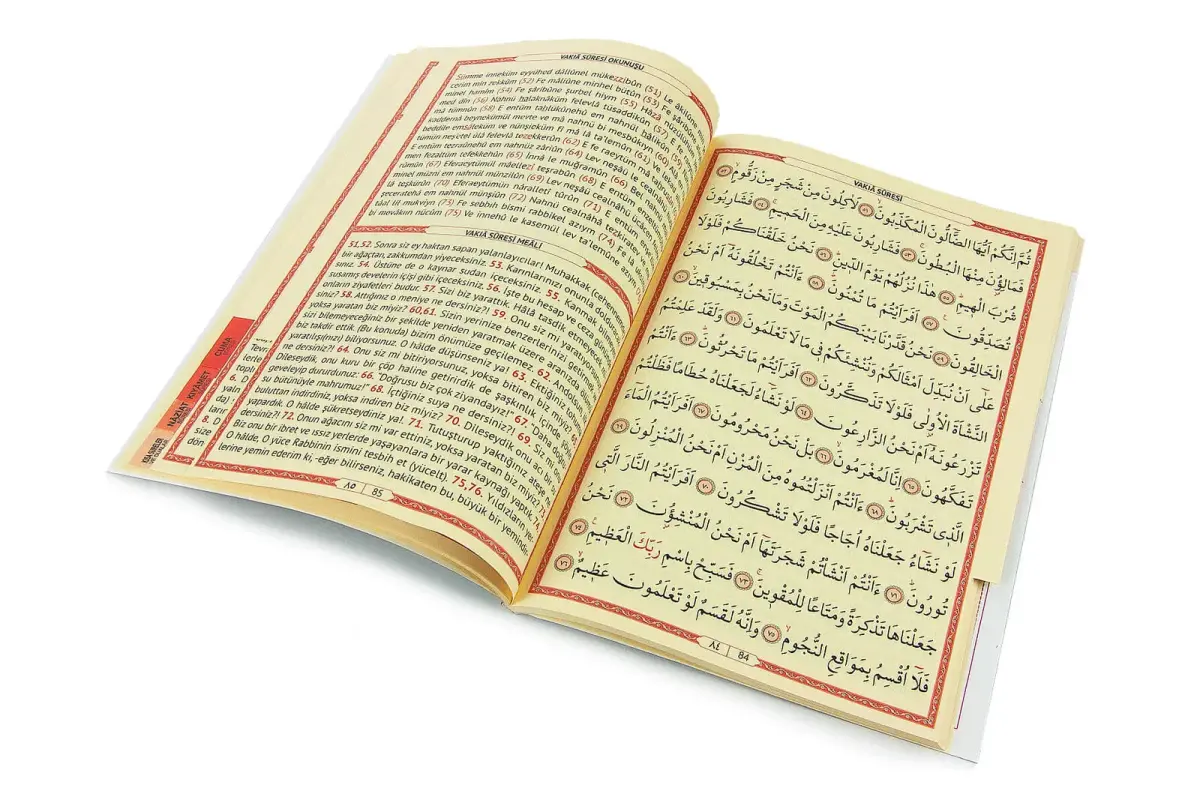 VAKIÂ SÛRESİ
ثُمَّ اِنَّكُمْ اَيُّهَا الضَّٓالُّونَ الْمُكَذِّبُونَۙ ٥١ لَاٰكِلُونَ مِنْ شَجَرٍ مِنْ زَقُّومٍۙ ٥٢
فَمَالِؤُنَ مِنْهَا الْبُطُونَۚ ٥٣ فَشَارِبُونَ عَلَيْهِ مِنَ الْحَمِيمِۚ ٥٤ فَشَارِبُونَ
شُرْبَ الْهِيمِۜ ٥٥ هٰذَا نُزُلُهُمْ يَوْمَ الدِّينِۜ ٥٦ نَحْنُ خَلَقْنَاكُمْ فَلَوْلَا
تُصَدِّقُونَ ٥٧ اَفَرَاَيْتُمْ مَا تُمْنُونَۜ ٥٨ ءَاَنْتُمْ تَخْلُقُونَهُٓ اَمْ نَحْنُ
الْخَالِقُونَ ٥٩ نَحْنُ قَدَّرْنَا بَيْنَكُمُ الْمَوْتَ وَمَا نَحْنُ بِمَسْبُوقِينَۙ ٦٠
عَلٰٓى اَنْ نُبَدِّلَ اَمْثَالَكُمْ وَنُنْشِئَكُمْ فِي مَا لَا تَعْلَمُونَ ٦١ وَلَقَدْ عَلِمْتُمُ
النَّشْاَةَ الْاُولٰى فَلَوْلَا تَذَكَّرُونَ ٦٢ اَفَرَاَيْتُمْ مَا تَحْرُثُونَۜ ٦٣ ءَاَنْتُمْ
تَزْرَعُونَهُٓ اَمْ نَحْنُ الزَّارِعُونَ ٦٤ لَوْ نَشَٓاءُ لَجَعَلْنَاهُ حُطَامًا فَظَلْتُمْ
تَفَكَّهُونَ ٦٥ اِنَّا لَمُغْرَمُونَۙ ٦٦ بَلْ نَحْنُ مَحْرُومُونَ ٦٧ اَفَرَاَيْتُمُ الْمَٓاءَ
الَّذِي تَشْرَبُونَۜ ٦٨ ءَاَنْتُمْ اَنْزَلْتُمُوهُ مِنَ الْمُزْنِ اَمْ نَحْنُ الْمُنْزِلُونَ ٦٩
لَوْ نَشَٓاءُ جَعَلْنَاهُ اُجَاجًا فَلَوْلَا تَشْكُرُونَ ٧٠ اَفَرَاَيْتُمُ النَّارَ الَّتِي
تُورُونَۜ ٧١ ءَاَنْتُمْ اَنْشَاْتُمْ شَجَرَتَهَٓا اَمْ نَحْنُ الْمُنْشِؤُنَ ٧٢ نَحْنُ
جَعَلْنَاهَا تَذْكِرَةً وَمَتَاعًا لِلْمُقْوِينَۚ ٧٣ فَسَبِّحْ بِاسْمِ رَبِّكَ الْعَظِيمِ ٧٤
فَلَٓا اُقْسِمُ بِمَوَاقِعِ النُّجُومِۙ ٧٥ وَاِنَّهُ لَقَسَمٌ لَوْ تَعْلَمُونَ عَظِيمٌۙ ٧٦
٨٤ | 84
VAKIÂ SÛRESİ OKUNUŞU
Sümme inneküm eyyühed dâllûnel mükezzibûn (51) Le âkilûne
cerim min zekkûm (52) Fe mâliûne minhel bütûn (53) Fe şâribûne
minel hamîm (54) Fe şâribûne şurbel hîym (55) Hâzâ nüzülühüm
med dîn (56) Nahnü halaknâküm felevlâ tüsaddikûn (57) E fe
mâ tümnûn (58) E entüm tahlükûnehû em nahnül hâlikûn (59)
kaddernâ beynekümül mevte ve mâ nahnü bi mesbûkıyn (60) Alâ
beddile emsâleküm ve nünşieküm fî mâ lâ ta'lemûn (61) Ve lekad
tümün neş'etel ûlâ felevlâ tezekkerûn (62) E fe raeytüm mâ
E entüm tezraûnehû em nahnüz zâriûn (64) Lev neşâü le cealnâhü
men fezaltüm tefekkehûn (65) İnnâ le muğramûn (66) Bel nahnü
rûmûn (67) Eferaeytümül mâellezî teşrabûn (68) E entüm enzeltümûhü
minel müzni em nahnül münzilûn (69) Lev neşâü cealnâhü ücâcen
lâ teşkürûn (70) Eferaeytümün nârelletî tûrûn (71) E entüm
şeceratehâ em nahnül münşiûn (72) Nahnü cealnâhâ tezkiraten
tâal lil mukviyn (73) Fe sebbih bismi rabbikel azıym (74) Fe lâ
bi mevâkın nücûm (75) Ve innehû le kasemül lev ta'lemûne azıym
VAKIÂ SÛRESİ MEÂLİ
51,52. Sonra siz ey haktan sapan yalanlayıcılar! Muhakkak (cehennemde)
bir ağaçtan, zakkumdan yiyeceksiniz. 53. Karınlarınızı onunla dolduracak
sınız. 54. Üstüne de o kaynar sudan içeceksiniz. 55. Kanmak bilmez
susamış develerin içişi gibi içeceksiniz. 56. İşte bu hesap ve ceza gününde
onların ziyafetleri budur. 57. Sizi biz yarattık. Hâlâ tasdik etmeyecek
siniz? 58. Attığınız o meniye ne dersiniz?! 59. Onu siz mi
yoksa yaratan biz miyiz? 60,61. Sizin yerinize benzerlerinizi getirmek
sizi bilemeyeceğiniz bir şekilde yeniden yaratmak üzere aranızda ölümü
biz takdir ettik. (Bu konuda) bizim önümüze geçilemez. 62. Andolsun,
yaratılış(ınız)ı biliyorsunuz. O hâlde düşünseniz ya! 63. Ektiğiniz tohuma
ne dersiniz?! 64. Onu siz mi bitiriyorsunuz, yoksa bitiren biz miyiz?
Dileseydik, onu kuru bir çöp haline getirdik de şaşkınlık içinde
geveleyip dururdunuz: 66. "Doğrusu biz çok ziyandayız!" 67. "Daha doğru
su bütünüyle mahrumuz!" 68. İçtiğiniz suya ne dersiniz?! 69. Siz mi
buluttan indirdiniz, yoksa indiren biz miyiz? 70. Dileseydik, onu acı bir su
yapardık. O hâlde şükretseydiniz ya!. 71. Tutuşturup yaktığınız ateşe ne
dersiniz?! 72. Onun ağacını siz mi var ettiniz, yoksa yaratan biz miyiz?
Biz onu bir ibret ve ıssız yerlerde yaşayanlara bir yarar kaynağı yaptık.
O hâlde, O yüce Rabbinin ismini tesbih et (yücelt). 75,76. Yıldızların yer
lerine yemin ederim ki, -eğer bilirseniz, hakikaten bu, büyük bir yemindir.
٨٥ | 85
CUMA
KIYÂMET
NÂZİAT